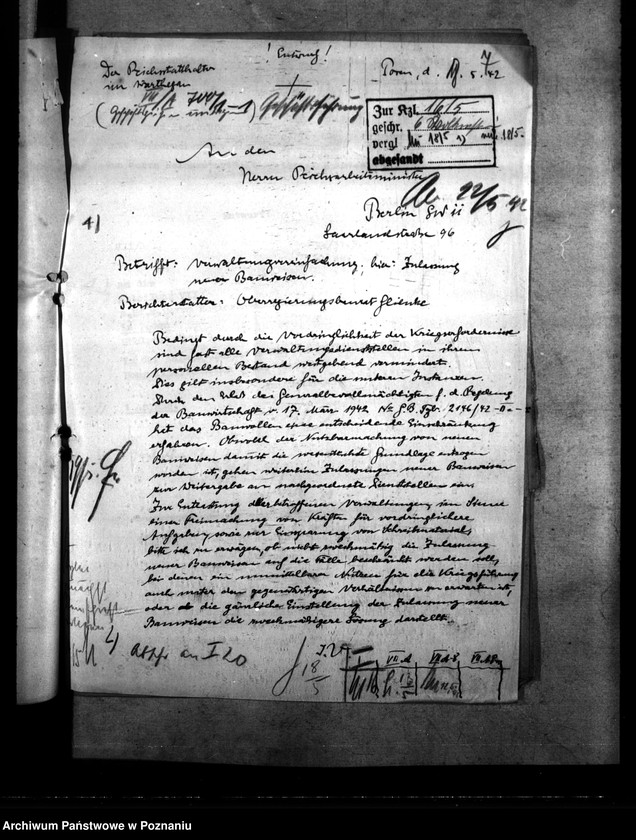 ! Entwurf !
Der Reichsstatthalter
im Warthegau
Posen, d. 5. 42
VII/A 7001
Zur Kzl. 16/5
geschr.
vergl 18/5
abgesandt
An den
Herrn Reichsarbeitsminister
22/5 42
Berlin SW 11
Saarlandstraße 96
Betrifft: Verwaltungsvereinfachung, hier: Zulassung
neuer Bauweisen.
Berichterstatter: Oberregierungsbaurat Glienke
Bedingt durch die Vordringlichkeit der Kriegserfordernisse
sind fast alle Verwaltungsdienststellen in ihrem
personellen Bestand weitgehend vermindert.
Dies gilt insbesondere für die unteren Instanzen.
Durch den Erlaß des Generalbevollmächtigten f. d. Regelung
der Bauwirtschaft v. 17. März 1942 Nr G.B. 2146/42
hat das Bauwollen eine entscheidende Einschränkung
erfahren. Obwohl der Nutzbarmachung von neuen
Bauweisen damit die wesentlichste Grundlage entzogen
worden ist, gehen weiterhin Zulassungen neuer Bauweisen
zur Weitergabe an nachgeordnete Dienststellen ein
Zur Entlastung der betroffenen Verwaltungen im Sinne
einer Freimachung von Kräften für vordringlichere
Aufgaben sowie zur Einsparung von Schreibmaterial
bitte ich zu erwägen, ob nicht zweckmäßig die Zulassung
neuer Bauweisen auf die Fälle beschränkt werden soll,
bei denen ein unmittelbarer Nutzen für die Kriegsführung
auch unter den gegenwärtigen Verhältnissen zu erwarten ist,
oder ob die gänzliche Einstellung der Zulassung neuer
Bauweisen die zweckmäßigere Lösung darstellt.
I.V.
18/5
Archiwum Państwowe w Poznaniu